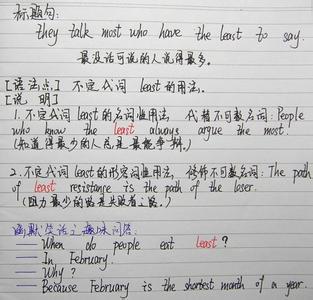 标题句:
They talk most who have the least to say.
最没话可说的人说得最多。
[语法点] 不定代词 least的用法。
[说 明]
1. 不定代词least的名词性用法, 代替不可数名词: People
who know the least always argue the most.
(知道得最少的人总是最能争辩。)
2. 不定代词least的形容词性用法, 修饰不可数名词: The path
of least resistance is the path of the loser.
(阻力最少的路是失败者之路。)
幽默笑话之趣味问答:
— When do people eat least?
— In February.
— Why?
— Because February is the shortest month of a year.